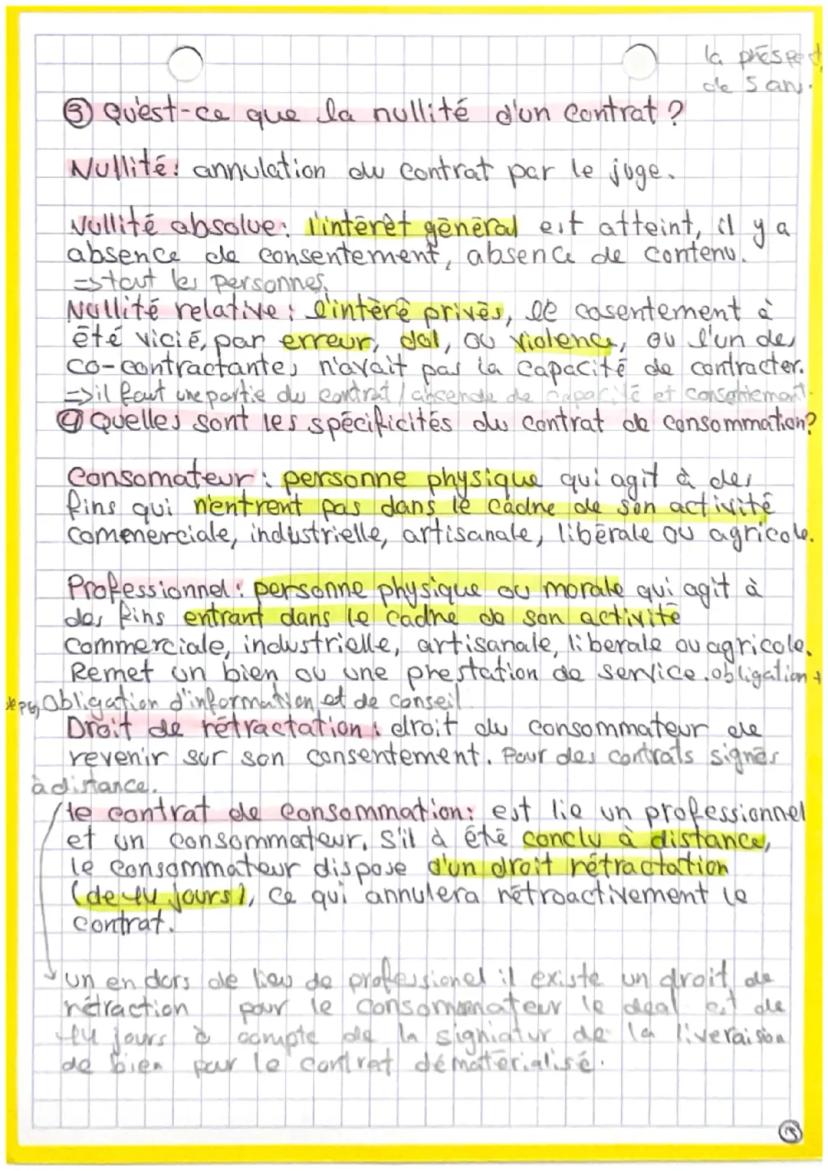 la préspect
de 5 ans.
③ Qu'est-ce que la nullité d'un contrat ?
Nullité : annulation du contrat par le juge.
Nullité absolue : l'intérêt général est atteint, il y a
absence de consentement, absence de contenu.
=> tout les personnes.
Nullité relative : l'intérê privés, le cosentement à
été vicié, par erreur, dol, ou violence, ou l'un des
co-contractantes n'avait pas la capacité de contracter.
=> il faut une partie du contrat / abscende de capacité et consentement.
④ Quelles sont les spécificités du contrat de consommation?
Consomateur : personne physique qui agit à des
fins qui n'entrent pas dans le cadre de son activité
comenerciale, industrielle, artisanale, libérale ou agricole.
Professionnel : personne physique ou morale qui agit à
des fins entrant dans le cadre de son activité
commerciale, industrielle, artisanale, liberale ou agricole.
Remet un bien ou une prestation de service. obligation +
Obligation d'information et de conseil
Droit de rétractation : droit du consommateur de
revenir sur son consentement. Pour des contrats signés
à distance.
le contrat de consommation : est lie un professionnel
et un consommateur. S'il à été conclu à distance,
le consommateur dispose d'un droit rétractation
(de 14 jours), ce qui annulera rétroactivement le
contrat.
un en dors de lieu de professionel il existe un droit de
rétraction pour le consommateur le deal est de
14 jours à compte de la signiatur de la liveraision
de bien pour le contrat dématérialisé.